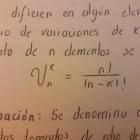 difieren en algún
de variaciones de k
de n elementos se
V_n^k = n! / (n-k)!
Se denomino